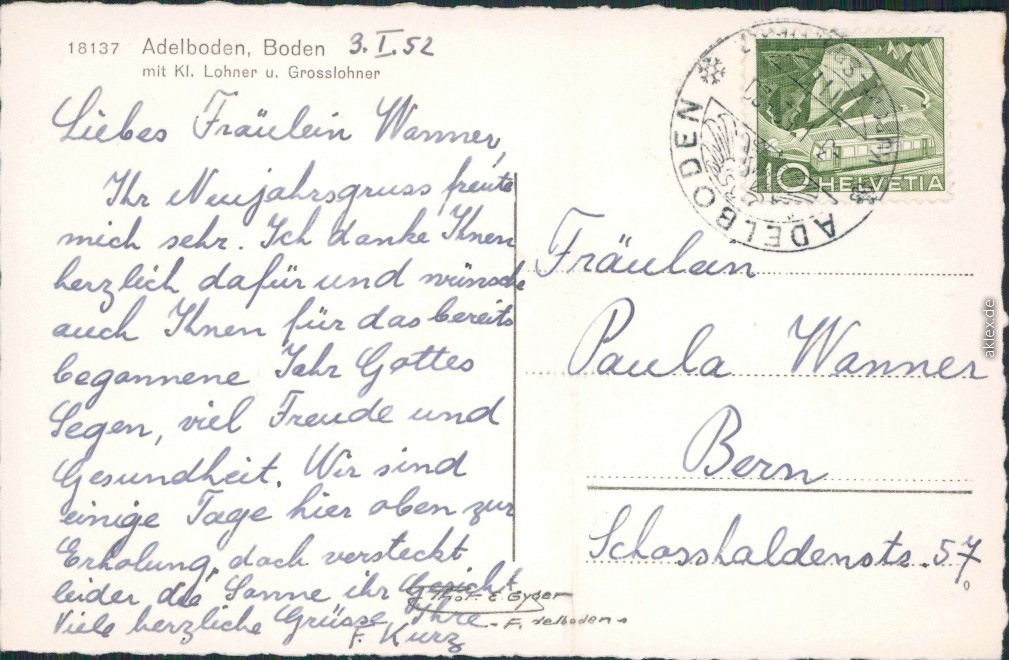 18137 Adelboden, Boden 3. I. 52
mit Kl. Lohner u. Grosslohner
Liebes Fräulein Wanner,
Ihr Neujahrsgruss freute
mich sehr. Ich danke Ihnen
herzlich dafür und wünsche
auch Ihnen für das bereits
begonnene Jahr Gottes
Segen, viel Freude und
Gesundheit. Wir sind
einige Tage hier oben zur
Erholung, doch versteckt
leider die Sonne ihr Gesicht
Viele herzliche Grüsse Ihre
F. Kurz
Phot. E. Gyger
Adelboden
ADELBODEN
10 HELVETIA
Fräulein
Paula Wanner
Bern
Schosshaldenstr. 57
aklex.de